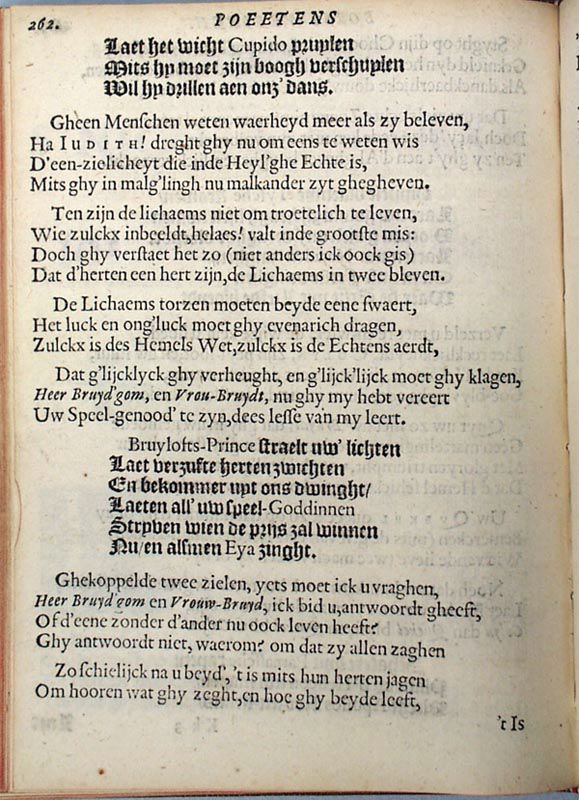 262. POEETENS
Laet het wicht Cupido pruylen
Mits hy moet zijn boogh verschuylen
Wil hy drillen aen onz' dans.
Gheen Menschen weten waerheyd meer als zy beleven,
Ha IUDITH! dreght ghy nu om eens te weten wis
D'een-zielicheyt die inde Heyl'ghe Echte is,
Mits ghy in malg'lingh nu malkander zyt ghegheven.
Ten zijn de lichaems niet om troetelich te leven,
Wie zulckx inbeeldt, helaes! valt inde grootste mis:
Doch ghy verstaet het zo (niet anders ick oock gis)
Dat d'herten een hert zijn, de Lichaems in twee bleven.
De Lichaems torzen moeten beyde eene swaert,
Het luck en ong'luck moet ghy evenarich dragen,
Zulckx is des Hemels Wet, zulckx is de Echtens aerdt,
Dat g'lijcklyck ghy verheught, en g'lijck'lijck moet ghy klagen,
Heer Bruyd'gom, en Vrou-Bruydt, nu ghy my hebt vereert
Uw Speel-genood' te zyn, dees lesse va'n my leert.
Bruylofts-Prince straelt uw' lichten
Laet verzufte herten zwichten
En bekommer uyt ons dwinght/
Laeten all' uw speel-Goddinnen
Stryven wien de prijs zal winnen
Nu/en alsmen Eya zinght.
Ghekoppelde twee zielen, yets moet ick u vraghen,
Heer Bruyd'gom en Vrouw-Bruyd, ick bid u, antwoordt gheeft,
Of d'eene zonder d'ander nu oock leven heeft?
Ghy antwoordt niet, waerom? om dat zy allen zaghen
Zo schielijck na u beyd', 't is mits hun herten jagen
Om hooren wat ghy zeght, en hoe ghy beyde leeft,
't Is